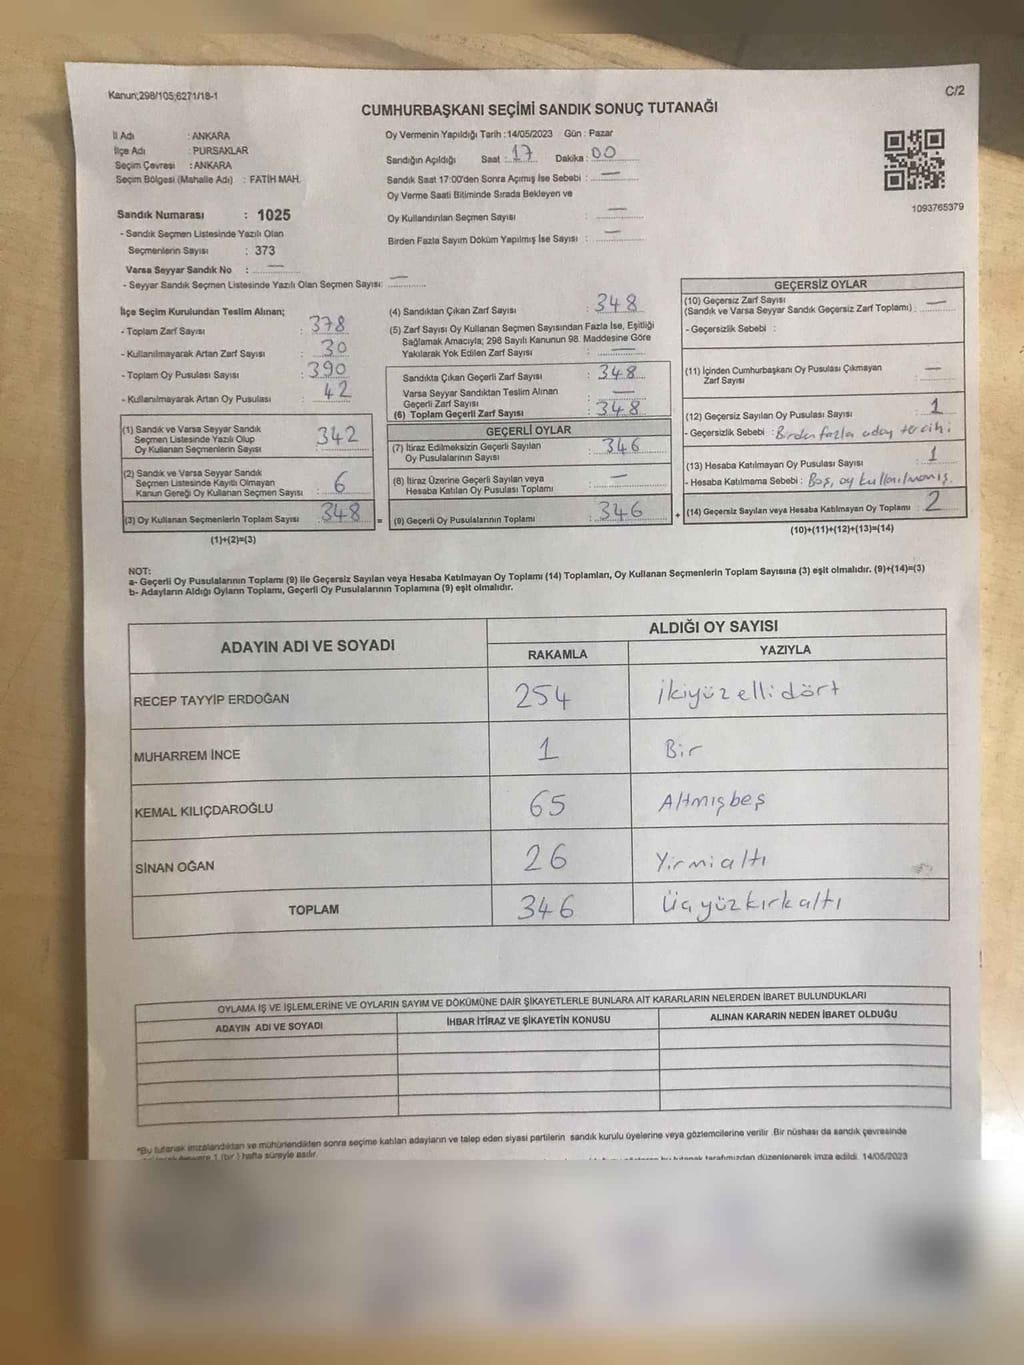 Kanun;298/105;6271/18-1
C/2
CUMHURBAŞKANI SEÇİMİ SANDIK SONUÇ TUTANAĞI
İl Adı : ANKARA
İlçe Adı : PURSAKLAR
Seçim Çevresi : ANKARA
Seçim Bölgesi (Mahalle Adı) : FATİH MAH.
Sandık Numarası : 1025
- Sandık Seçmen Listesinde Yazılı Olan
Seçmenlerin Sayısı : 373
Varsa Seyyar Sandık No : —
- Seyyar Sandık Seçmen Listesinde Yazılı Olan Seçmen Sayısı: —
Oy Vermenin Yapıldığı Tarih :14/05/2023 Gün : Pazar
Sandığın Açıldığı Saat : 17 Dakika : 00
Sandık Saat 17:00'den Sonra Açımış İse Sebebi : —
Oy Verme Saati Bitiminde Sırada Bekleyen ve
Oy Kullandırılan Seçmen Sayısı : —
Birden Fazla Sayım Döküm Yapılmış İse Sayısı : —
1093765379
İlçe Seçim Kurulundan Teslim Alınan;
- Toplam Zarf Sayısı : 378
- Kullanılmayarak Artan Zarf Sayısı : 30
- Toplam Oy Pusulası Sayısı : 390
- Kullanılmayarak Artan Oy Pusulası : 42
(1) Sandık ve Varsa Seyyar Sandık
Seçmen Listesinde Yazılı Olup
Oy Kullanan Seçmenlerin Sayısı : 342
(2) Sandık ve Varsa Seyyar Sandık
Seçmen Listesinde Kayıtlı Olmayan
Kanun Gereği Oy Kullanan Seçmen Sayısı : 6
(3) Oy Kullanan Seçmenlerin Toplam Sayısı : 348
(1)+(2)=(3)
(4) Sandıktan Çıkan Zarf Sayısı : 348
(5) Zarf Sayısı Oy Kullanan Seçmen Sayısından Fazla İse, Eşitliği
Sağlamak Amacıyla; 298 Sayılı Kanunun 98. Maddesine Göre
Yakılarak Yok Edilen Zarf Sayısı : —
Sandıkta Çıkan Geçerli Zarf Sayısı : 348
Varsa Seyyar Sandıktan Teslim Alınan
Geçerli Zarf Sayısı : —
(6) Toplam Geçerli Zarf Sayısı : 348
GEÇERLİ OYLAR
(7) İtiraz Edilmeksizin Geçerli Sayılan
Oy Pusulalarının Sayısı : 346
(8) İtiraz Üzerine Geçerli Sayılan veya
Hesaba Katılan Oy Pusulası Toplamı : —
= (9) Geçerli Oy Pusulalarının Toplamı : 346
GEÇERSİZ OYLAR
(10) Geçersiz Zarf Sayısı
(Sandık ve Varsa Seyyar Sandık Geçersiz Zarf Toplamı) : —
- Geçersizlik Sebebi :
(11) İçinden Cumhurbaşkanı Oy Pusulası Çıkmayan
Zarf Sayısı : —
(12) Geçersiz Sayılan Oy Pusulası Sayısı : 1
- Geçersizlik Sebebi : Birden fazla aday tercihi
(13) Hesaba Katılmayan Oy Pusulası Sayısı : 1
- Hesaba Katılmama Sebebi : Boş, oy kullanılmamış.
+ (14) Geçersiz Sayılan veya Hesaba Katılmayan Oy Toplamı : 2
(10)+(11)+(12)+(13)=(14)
NOT:
a- Geçerli Oy Pusulalarının Toplamı (9) ile Geçersiz Sayılan veya Hesaba Katılmayan Oy Toplamı (14) Toplamları, Oy Kullanan Seçmenlerin Toplam Sayısına (3) eşit olmalıdır. (9)+(14)=(3)
b- Adayların Aldığı Oyların Toplamı, Geçerli Oy Pusulalarının Toplamına (9) eşit olmalıdır.
ADAYIN ADI VE SOYADI
ALDIĞI OY SAYISI
RAKAMLA YAZIYLA
RECEP TAYYİP ERDOĞAN 254 İkiyüz elli dört
MUHARREM İNCE 1 Bir
KEMAL KILIÇDAROĞLU 65 Altmışbeş
SİNAN OĞAN 26 Yirmialtı
TOPLAM 346 Üçyüzkırkaltı
OYLAMA İŞ VE İŞLEMLERİNE VE OYLARIN SAYIM VE DÖKÜMÜNE DAİR ŞİKAYETLERLE BUNLARA AİT KARARLARIN NELERDEN İBARET BULUNDUKLARI
ADAYIN ADI VE SOYADI İHBAR İTİRAZ VE ŞİKAYETİN KONUSU ALINAN KARARIN NEDEN İBARET OLDUĞU
*Bu tutanak imzalandıktan ve mühürlendikten sonra seçime katılan adayların ve talep eden siyasi partilerin sandık kurulu üyelerine veya gözlemcilerine verilir. Bir nüshası da sandık çevresinde
1 (bir) hafta süreyle asılır.
bu tutanak tarafımızdan düzenlenerek imza edildi. 14/05/2023